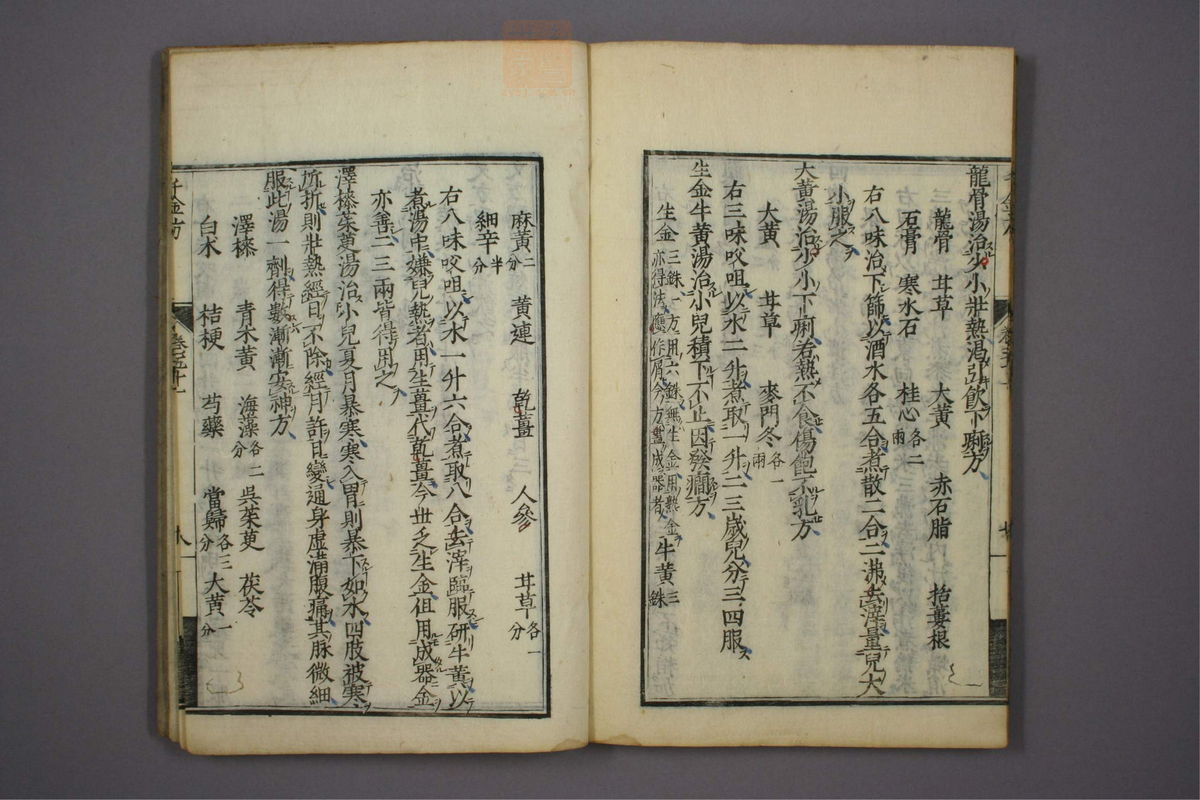 龍骨湯治少小壯熱渴引飲下痢方
龍骨 甘草 大黃 赤石脂 括蔞根
石膏 寒水石 桂心各二兩
右八味治下篩以酒水各五合煮散二合二沸去滓量兒大
小服之
大黃湯治少小下痢若熱不食傷飽不乳方
大黃 甘草 麥門冬各一兩
右三味㕮咀以水二升煮取一升二三歲兒分三四服
生金牛黃湯治小兒積下不止因發癇方
生金三銖一方用六銖無生金用熟金亦得法應作屑今方盡成器者 牛黃三銖
麻黃二分 黃連 乾薑 人參 甘草各一分
細辛半分
右八味㕮咀以水一升六合煮取八合去滓臨服研牛黃以
煮湯中嫌兒熱者用生薑代乾薑今世乏生金但用成器金
亦善二三兩皆得用之
澤漆茱萸湯治小兒夏月暴寒寒入胃則暴下如水四肢被寒
所折則壯熱經日不除經月許日變通身虛滿腹痛其脉微細
服此湯一劑得數漸漸安神方
澤漆 青木黃 海藻各二分 吳茱萸 茯苓
白朮 桔梗 芍藥 當歸各三分 大黃一分
千金方
八